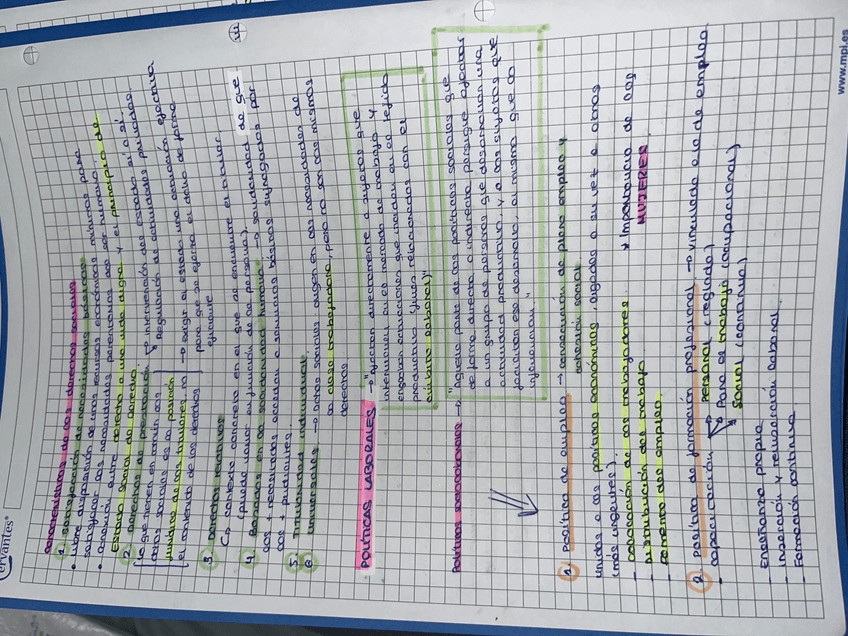 Características de los derechos sociales
1. Satisfacción de necesidades básicas
• Libre disposición de unos recursos económicos mínimos para
satisfacer las necesidades perentorias del ser humano.
• Conexión entre derecho a una vida digna y el principio de
Estado social de derecho.
2. Derechos de prestación → intervención del estado sí o sí.
(lo que tienen en común los → Regulación de actividades privadas.
dchos sociales es la posición
jurídica de los titulares, no → exigir al estado una actuación efectiva
el contenido de los derechos) para que se ejercite el dcho de forma
ejercente
3. Derechos relativos
↳ contexto concreto en el que se encuentre el titular
(puede variar en función de la persona).
4. Basados en la solidaridad humana → solidaridad de que
los + necesitados accedan a servicios básicos sufragados por
los + pudientes.
5. Titularidad individual
6. Universales → dchos sociales surgen en las necesidades de
la clase trabajadora, pero no son los mismos
derechos
POLÍTICAS LABORALES → "afectan directamente a sujetos que
intervienen en el mercado de trabajo y
engloban actuaciones que inciden en el tejido
productivo relacionadas con el
ámbito laboral"
Políticas sociolaborales → "Aquella parte de las políticas sociales que
de forma directa o indirecta persigue afectar
a un grupo de personas que desarrollan una
actividad productiva, y a los sujetos que
posibilitan ese desarrollo, al mismo que la
1. Política de empleo → consecución de pleno empleo y
cohesión social
Unidas a las políticas económicas, ligadas a su vez a otras
(más urgentes)
- colocación de los trabajadores. * Importancia de las
- distribución del trabajo MUJERES.
- fomento del empleo.
2. Política de formación profesional → vinculada a la de empleo.
• capacitación → Personal (reglado)
→ Para el trabajo (ocupacional)
→ Social (continua)
Enseñanza propia
- Inserción y reinserción laboral.
- Formación continua
www.mpi.es
ervantes®